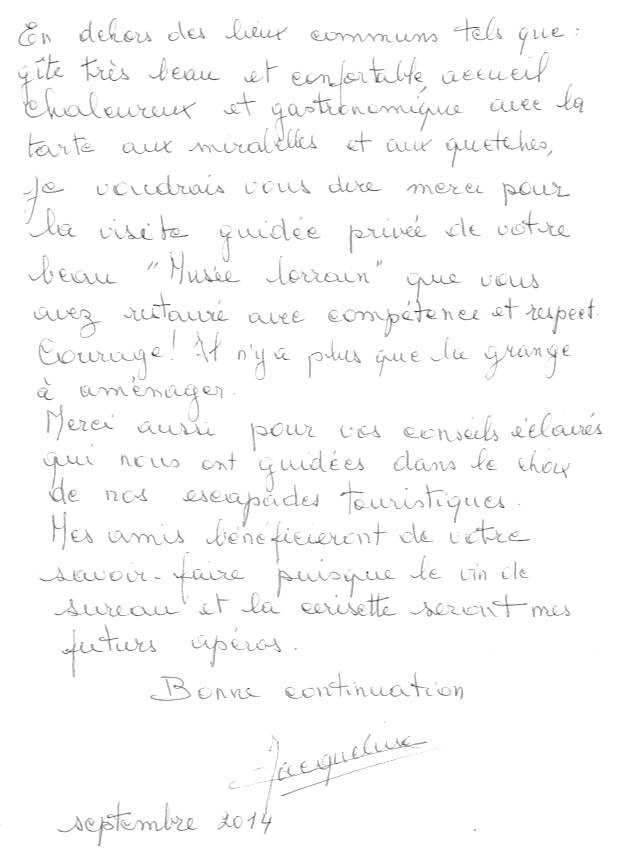 En dehors des lieux communs tels que :
gîte très beau et confortable, accueil
chaleureux et gastronomique avec la
tarte aux mirabelles et aux quetches,
Je voudrais vous dire merci pour
la visite guidée privée de votre
beau "Musée lorrain" que vous
avez restauré avec compétence et respect.
Courage! Il n'y a plus que la grange
à aménager.
Merci aussi pour vos conseils éclairés
qui nous ont guidées dans le choix
de nos escapades touristiques.
Mes amis bénéficieront de votre
savoir-faire puisque le vin de
sureau et la cerisette seront mes
futurs apéros.
Bonne continuation
Jacqueline
septembre 2014